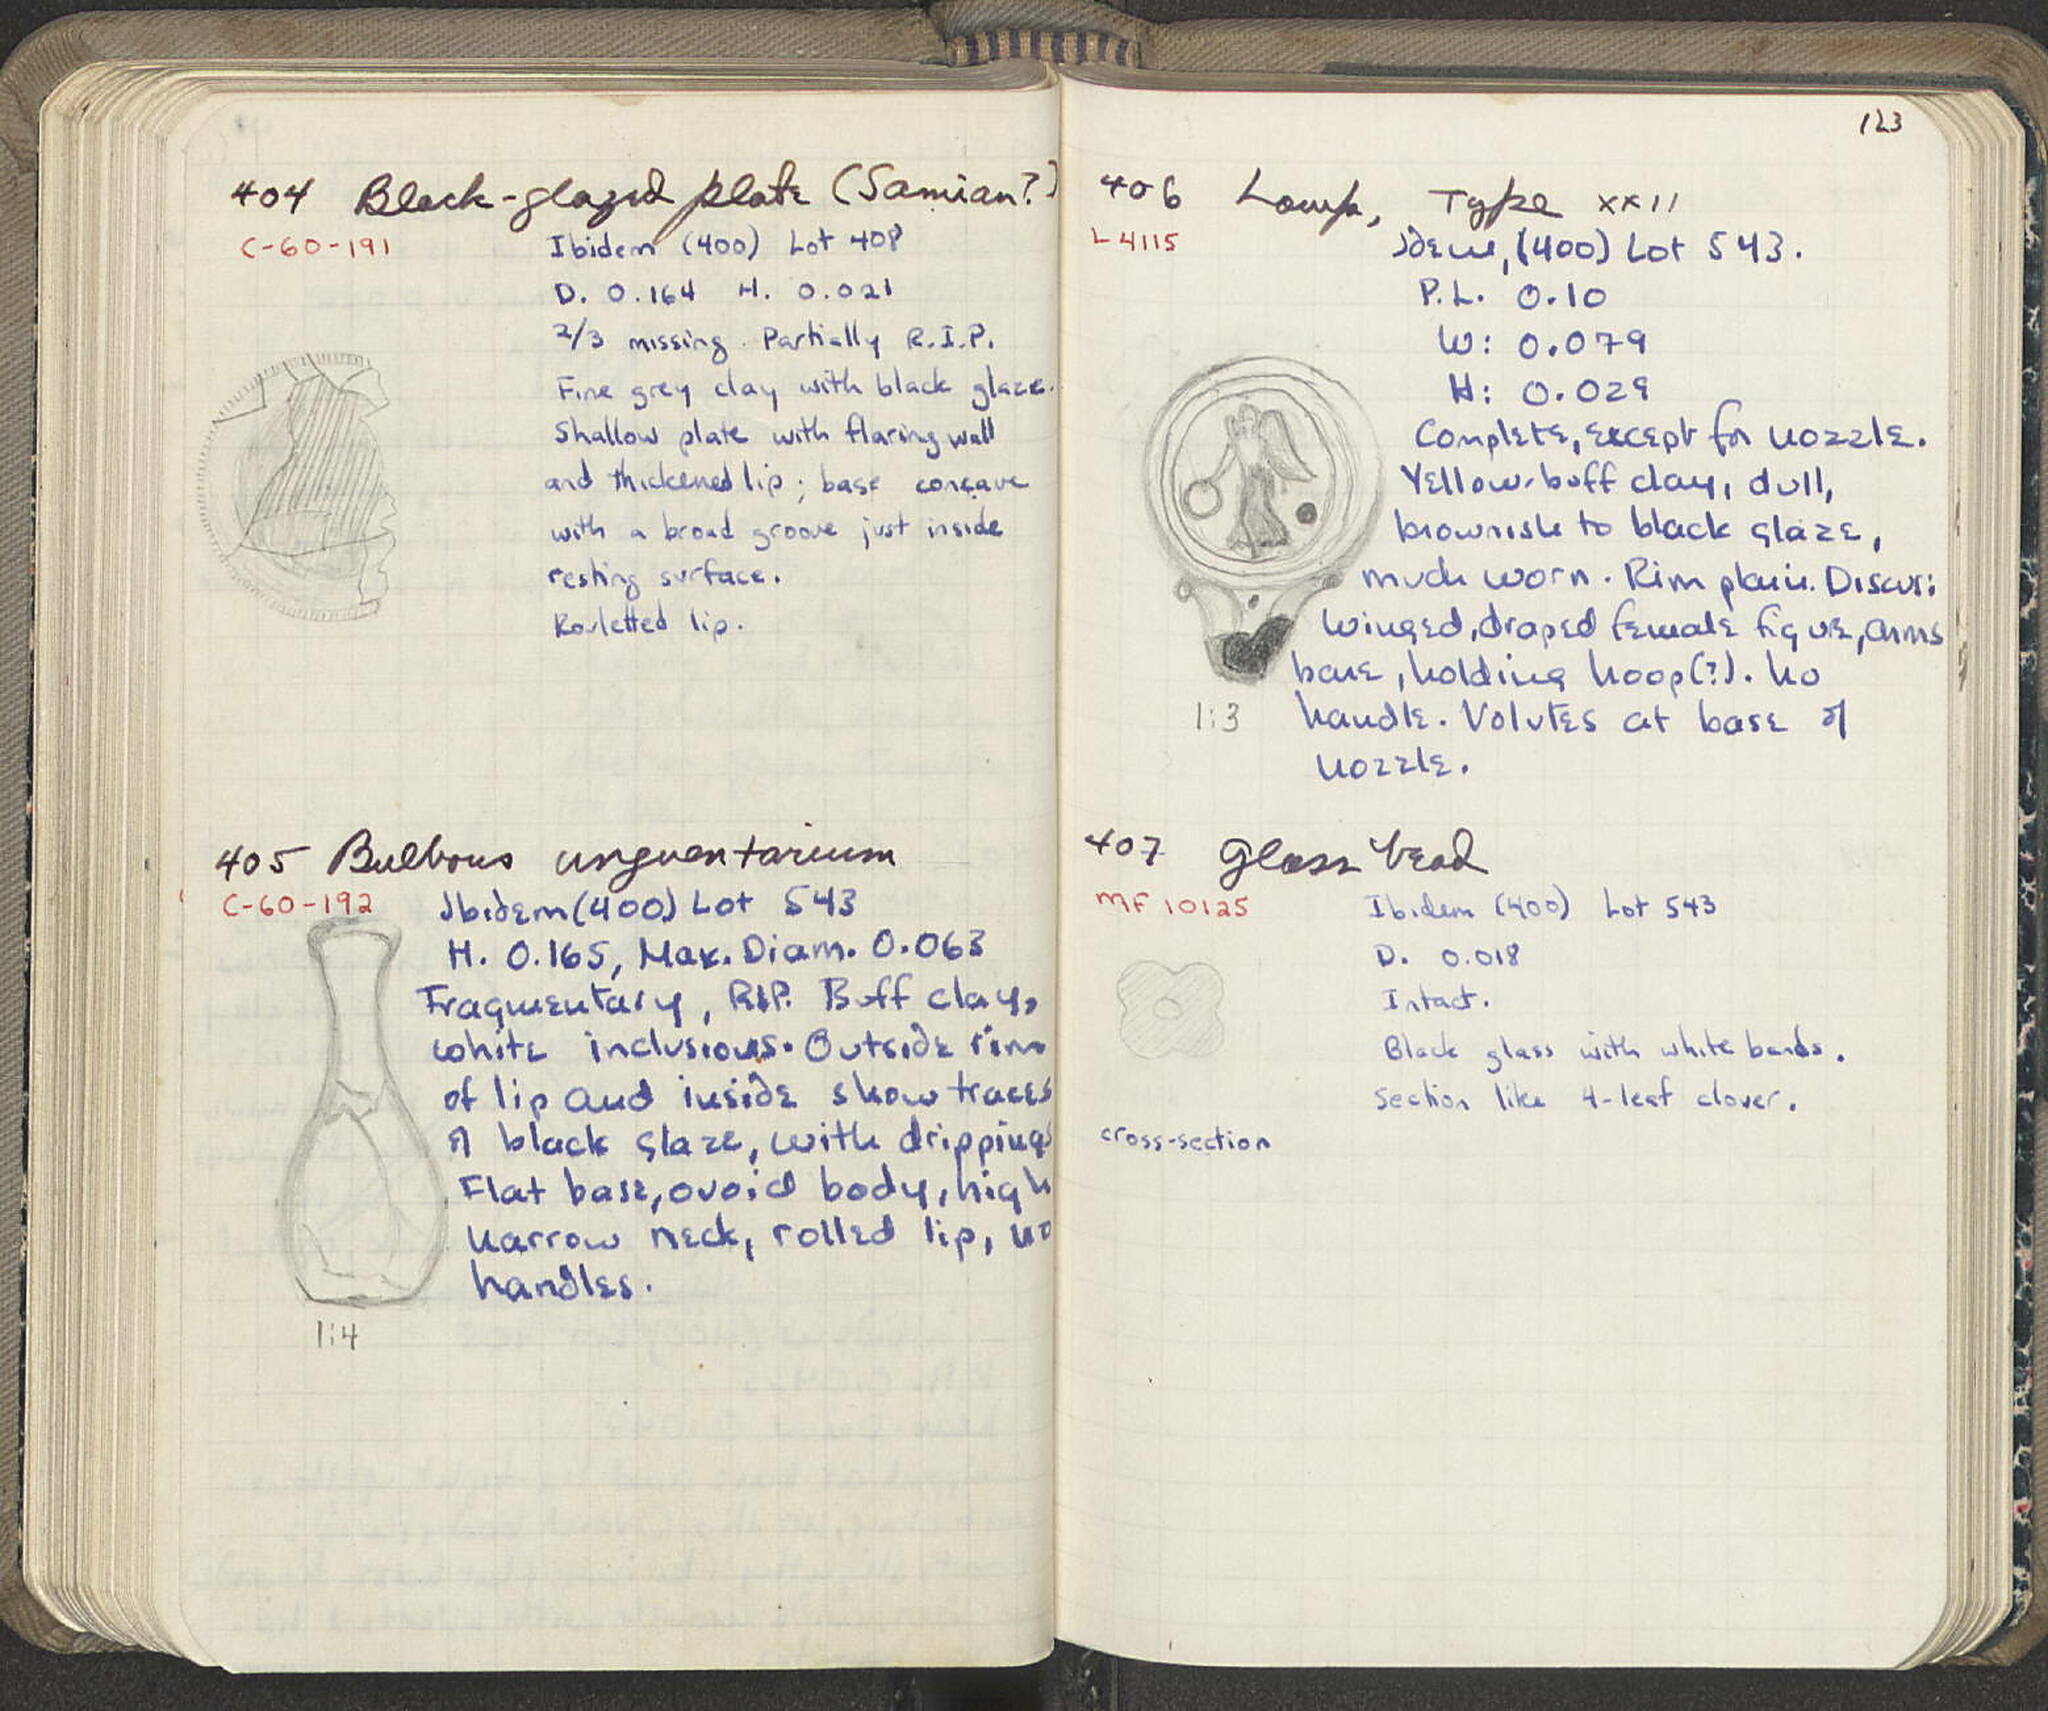 404 Black-glazed plate (Samian?)
C-60-191
Ibidem (400) Lot 408
D. 0.164 H. 0.021
2/3 missing. Partially R.I.P.
Fine grey clay with black glaze.
Shallow plate with flaring wall
and thickened lip; base concave
with a broad groove just inside
resting surface.
Rouletted lip.
405 Bulbous unguentarium
C-60-192
Ibidem (400) Lot 543
H. 0.165, Max. Diam. 0.063
Fragmentary, RIP. Buff clay,
white inclusions. Outside rim
of lip and inside show traces
of black glaze, with drippings
Flat base, ovoid body, high
narrow neck, rolled lip, no
handles.
1:4
123
406 Lamp, Type XXII
L 4115
Idem, (400) Lot 543.
P.L. 0.10
W: 0.079
H: 0.029
Complete, except for nozzle.
Yellow-buff clay, dull,
brownish to black glaze,
much worn. Rim plain. Discus:
Winged, draped female figure, arms
bare, holding hoop(?). No
handle. Volutes at base of
nozzle.
1:3
407 Glass bead
MF 10125
Ibidem (400) Lot 543
D. 0.018
Intact.
Black glass with white bands.
Section like 4-leaf clover.
cross-section